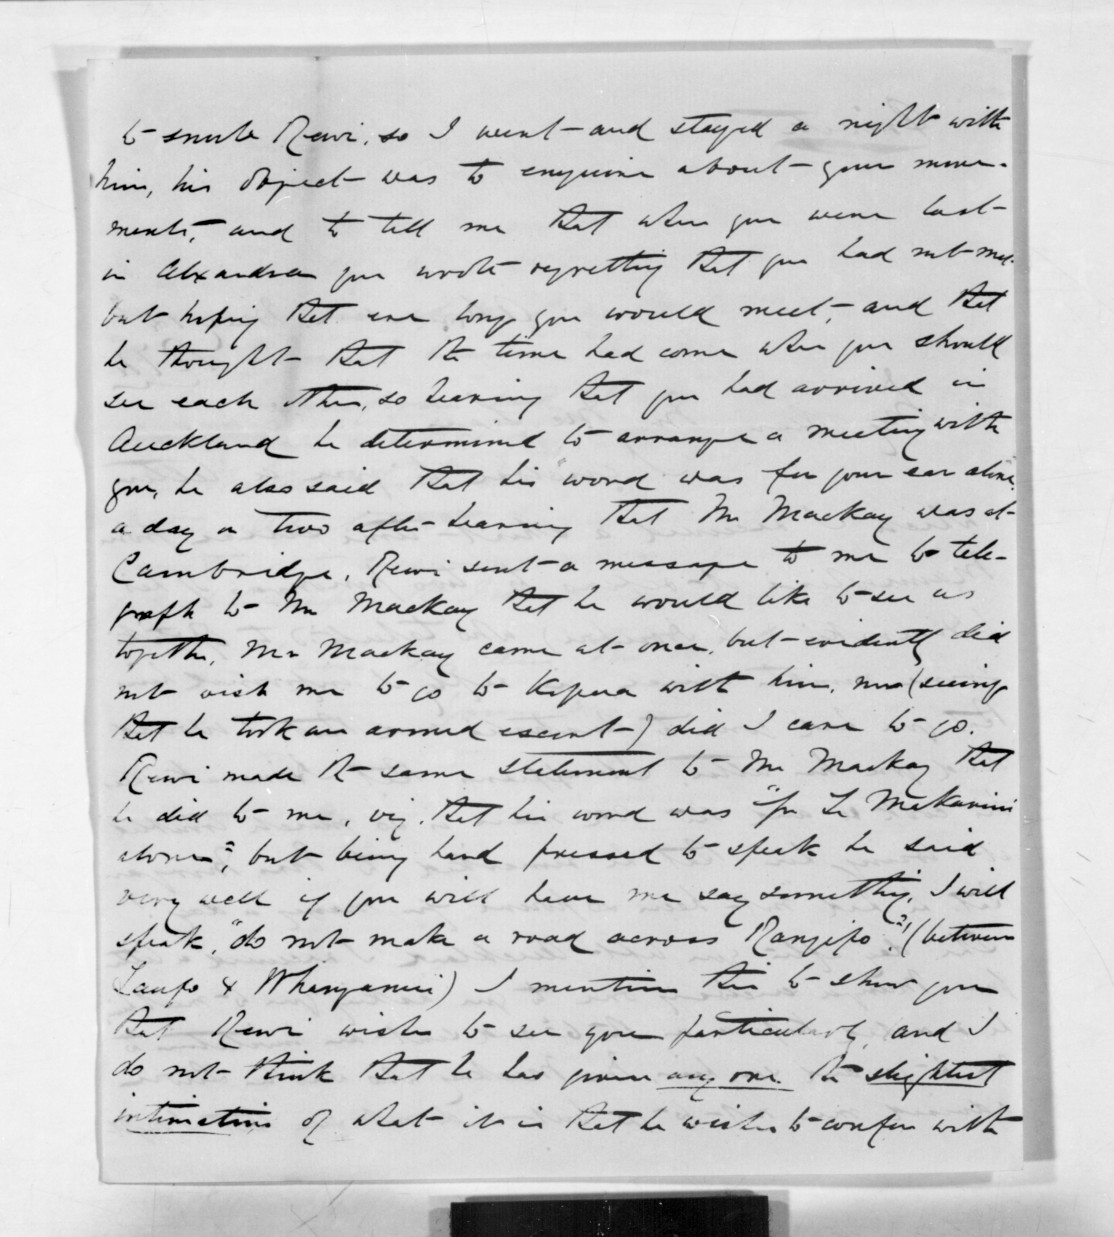 to Rewi, so I went and stayed a night with
him, his object was to enquire about your move-
ments, and to tell me that when you were last
in Alexandra you wrote regretting that you had not met
but hoping that ere long you would meet, and that
he thought that the time had come when you should
see each other, so hearing that you had arrived in
Auckland he determined to arrange a meeting with
you, he also said that his "word was for your ear alone".
a day or two after hearing that Mr Mackay was at
Cambridge, Rewi sent a message to me to tele-
graph to Mr Mackay that he would like to see us
together, Mr Mackay came at once, but evidently did
not wish me to go to Kopua with him, nor (seeing
that he took an armed escort) did I care to go.
Rewi made the same statement to Mr Mackay that
he did to me, viz. that his word was "for Te Makarini
alone", but being hard pressed to speak he said
very well if you will have me say something, I will
speak, "do not make a road across Rangipo", (between
Taupo & Whanganui) I mention this to show you
that Rewi wishes to see you particularly, and I
do not think that he has given any one the slightest
intimation of what it is that he wishes to confer with